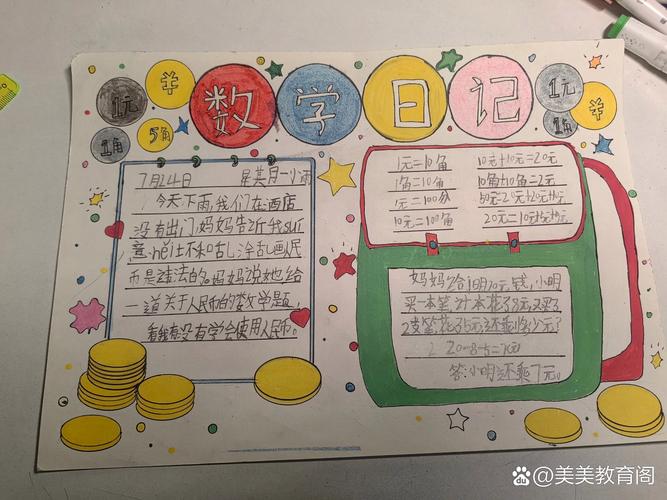 数学日记
1元
¥
1角
5角
1元
¥
1角
7月24日 星其月一 小雨
今天下雨,我们在酒店
没有出门,妈妈告诉我sui
意 hé 让不和咕乚涂乱画人民
币是违法的。妈妈说她也给
一道关于人民币的数学题,
看我有没有学会使用人民币。
1元=10角
1角=10角
1元=100分
10元=100角
10元+10元=20元
10角+10角=2元
50元=20元+20元+10元
20元=10元+5元+5元
妈妈给小明20元钱,小明
买一本笔计本花了8元,又买了
2支笔花了5元,还乘小多少元?
20-8-5=7(元)
答:小明还乘7元。
美美教育阁